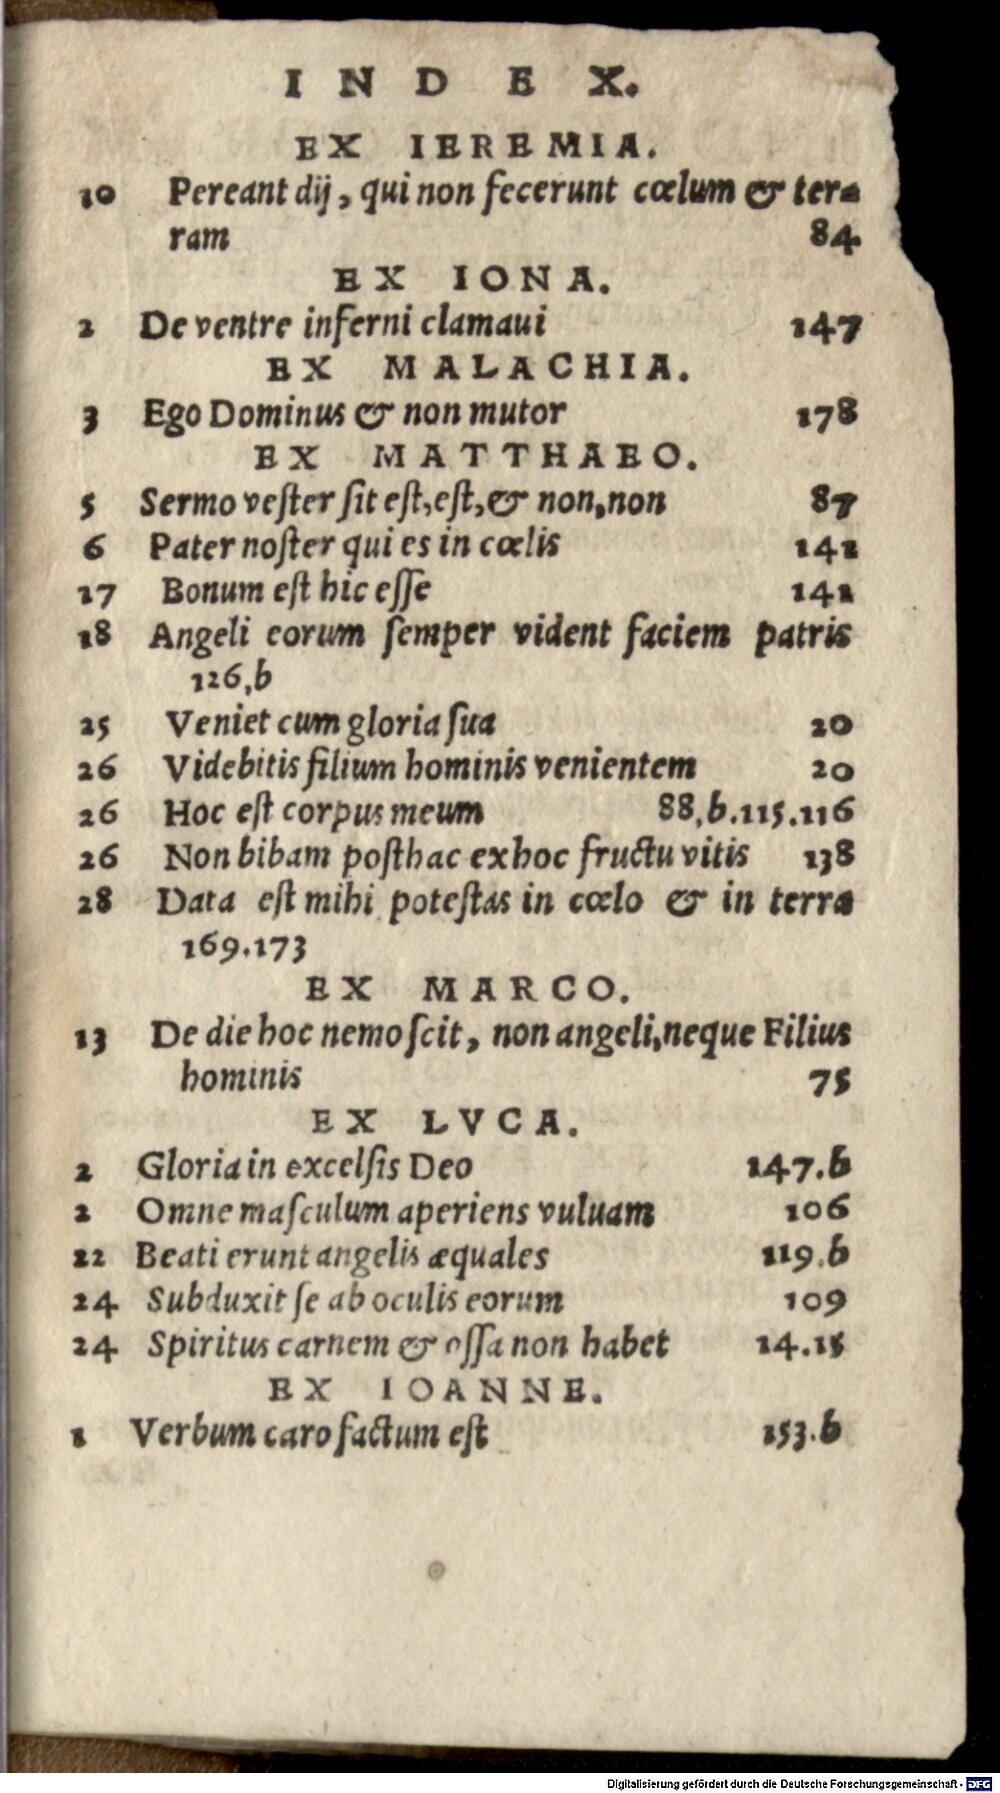 INDEX.
EX IEREMIA.
10 Pereant dij, qui non fecerunt cœlum & ter-
ram 84
EX IONA.
2 De ventre inferni clamaui 147
EX MALACHIA.
3 Ego Dominus & non mutor 178
EX MATTHAEO.
5 Sermo veſter ſit eſt,eſt,& non,non 87
6 Pater noſter qui es in cœlis 141
17 Bonum eſt hic eſſe 141
18 Angeli eorum ſemper vident faciem patris
126,b
25 Veniet cum gloria ſua 20
26 Videbitis filium hominis venientem 20
26 Hoc eſt corpus meum 88,b.115.116
26 Non bibam poſthac ex hoc fructu vitis 138
28 Data eſt mihi poteſtas in cœlo & in terra
169.173
EX MARCO.
13 De die hoc nemo ſcit, non angeli,neque Filius
hominis 75
EX LVCA.
2 Gloria in excelſis Deo 147.b
2 Omne maſculum aperiens vuluam 106
22 Beati erunt angelis æquales 119.b
24 Subduxit ſe ab oculis eorum 109
24 Spiritus carnem & oſſa non habet 14.15
EX IOANNE.
1 Verbum caro factum eſt 153.b
Digitalisierung gefördert durch die Deutsche Forschungsgemeinschaft - DFG